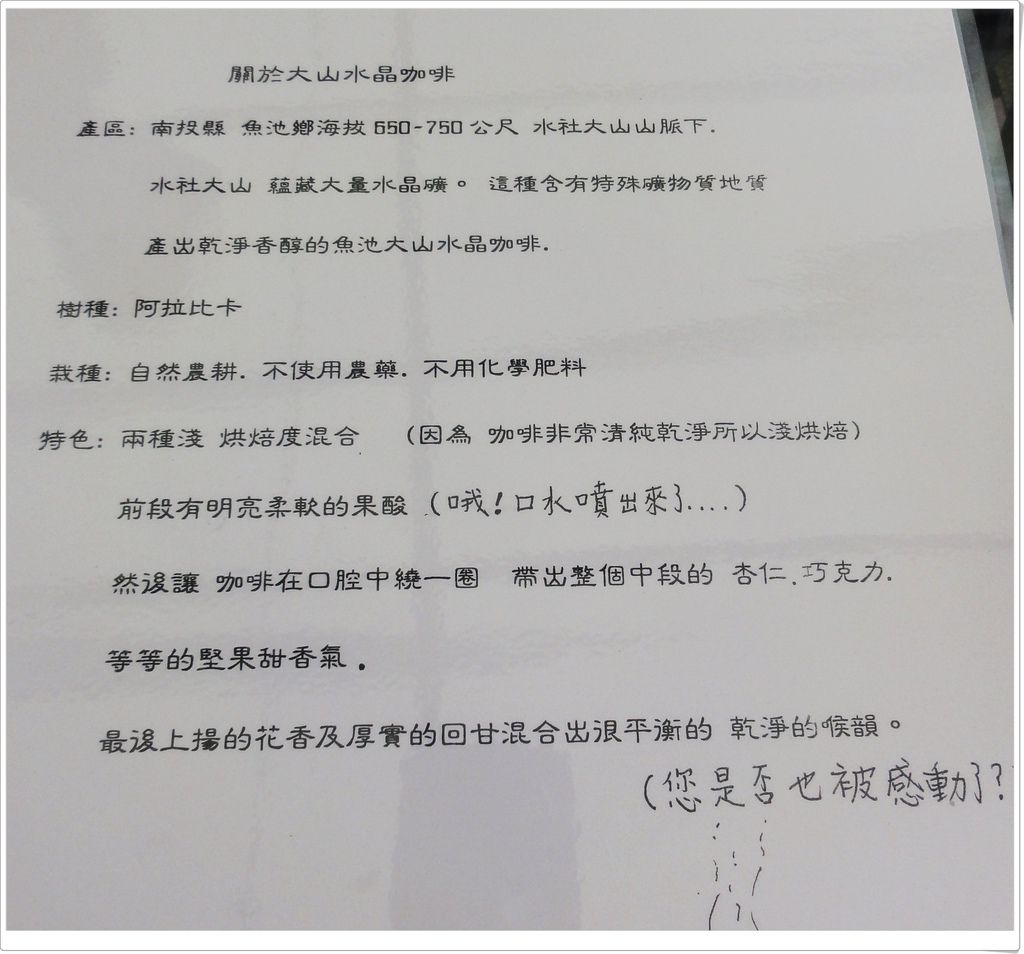 關於大山水晶咖啡
產區: 南投縣 魚池鄉海拔 650-750 公尺 水社大山山脈下.
水社大山 蘊藏大量水晶礦。 這種含有特殊礦物質地質
產出乾淨香醇的魚池大山水晶咖啡.
樹種: 阿拉比卡
栽種: 自然農耕. 不使用農藥. 不用化學肥料
特色: 兩種淺 烘焙度混合 (因為 咖啡非常清純乾淨所以淺烘焙)
前段有明亮柔軟的果酸 (哦! 口水噴出來了....)
然後讓 咖啡在口腔中繞一圈 帶出整個中段的 杏仁. 巧克力.
等等的堅果甜香氣.
最後上揚的花香及厚實的回甘混合出很平衡的 乾淨的喉韻。
(您是否也被感動了?